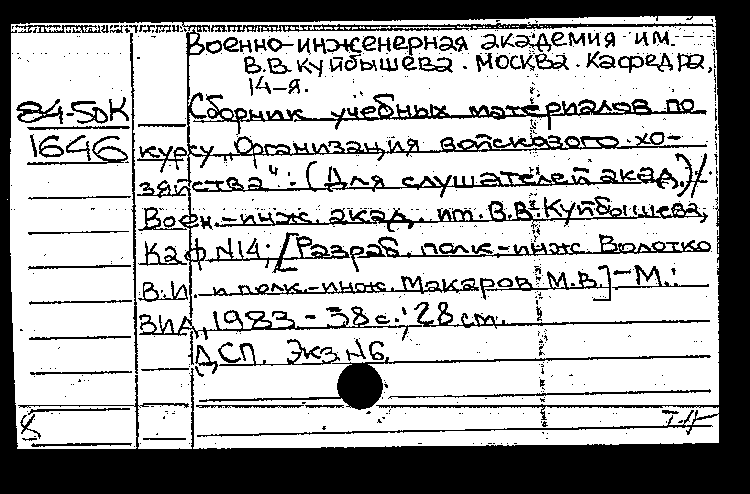 Военно-инженерная академия им.
В.В. Куйбышева. Москва. Кафедра,
14-я.
84-5ДК
Сборник учебных материалов по
1646
курсу „Организация войскового хо-
зяйства“: (Для слушателей акад.)/
Воен.-инж. акад. им. В.В. Куйбышева,
Каф. N14; [Разраб. полк.-инж. Волотко
В.И. и полк.-инж. Макаров М.В.] – М.:
ВИА, 1983. - 38 с.; 28 см.
ДСП. Экз. N6.
8